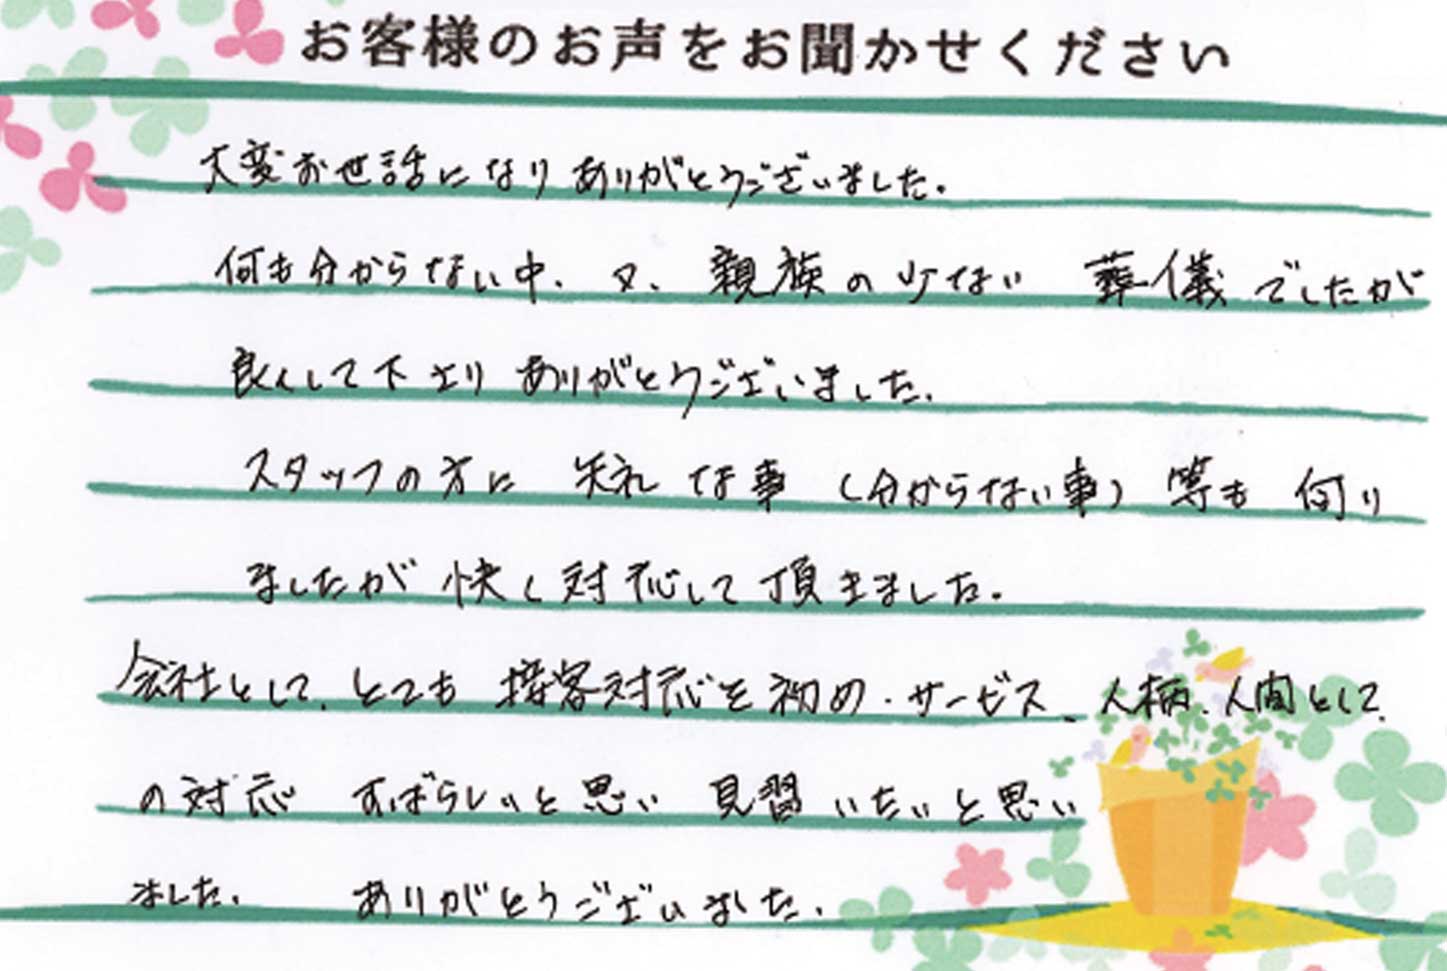 お客様のお声をお聞かせください
大変お世話になりありがとうございました。
何も分からない中、又、親族の少ない 葬儀でしたが
良くして下さり ありがとうございました。
スタッフの方に 失礼な事（分からない事）等も 伺い
ましたが 快く対応して頂きました。
会社として、とても 接客対応を初め・サービス、人柄、人間として、
の対応 すばらしいと思い 見習いたいと思い
ました。 ありがとうございました。